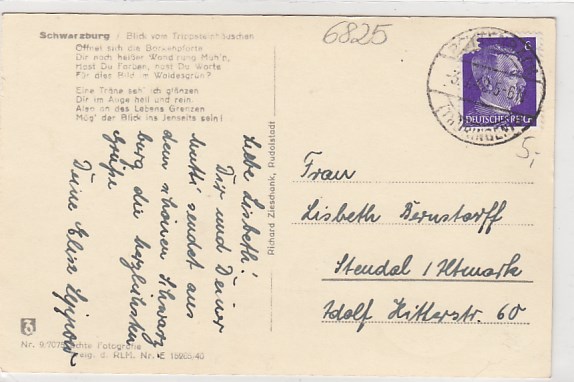 6825
Schwarzburg / Blick vom Trippsteinhäuschen
Öffnet sich die Borkenpforte
Dir nach heißer Wand'rung Müh'n,
Hast Du Farben, hast Du Worte
Für dies Bild im Waldesgrün?
Eine Träne seh' ich glänzen
Dir im Auge hell und rein.
Also an des Lebens Grenzen
Mög' der Blick ins Jenseits sein!
Liebe Lisbeth!
Dir und Deiner
Mutti sendet aus
dem schönen Schwarz
burg die herzlichsten
Grüße
Deine Elise
Richard Zieschank, Rudolstadt
6
DEUTSCHES REICH
(THÜRINGEN)
5,-
Frau
Lisbeth Bernstorff
Stendal / Altmark
Adolf Hitlerstr. 60
Nr. 8/7075 Echte Fotografie
RLM. Nr. E 15965/40